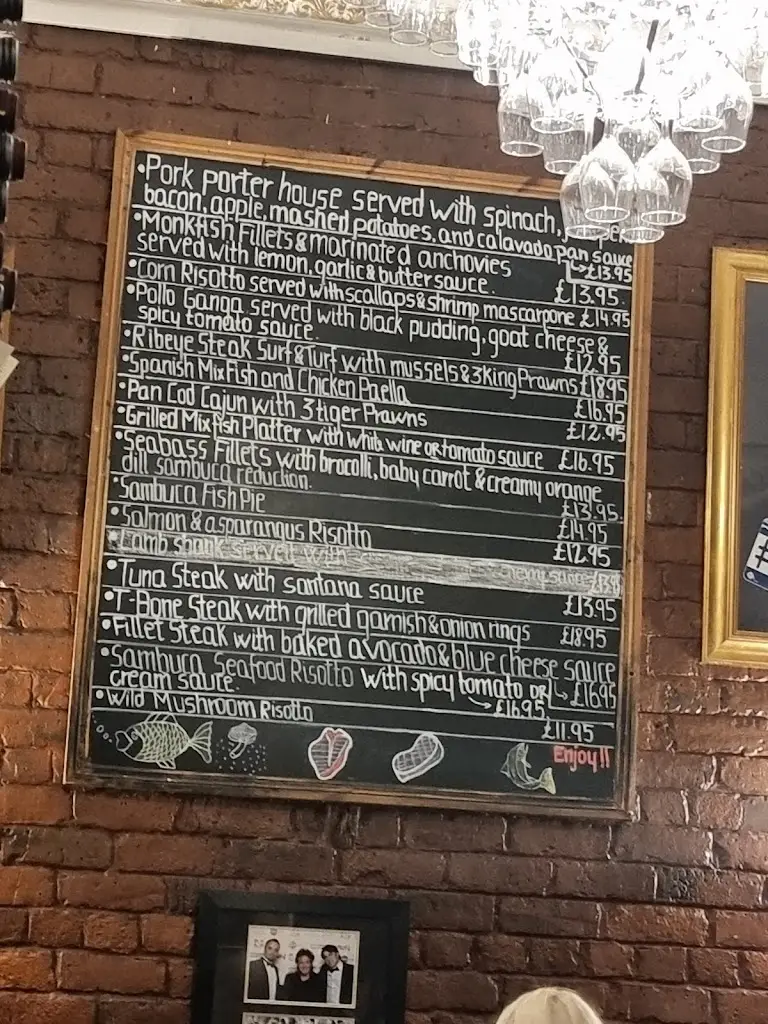 •Pork porter house served with spinach,
bacon, apple, mashed potatoes, and calavado pan sauce
£13.95
•Monkfish Fillets & marinated anchovies
served with lemon, garlic & butter sauce. £13.95.
•Corn Risotto served with scallaps & shrimp mascarpone £14.95
•Pollo Ganga served with black pudding, goat cheese &
spicy tomato sauce. £12.95
•Ribeye Steak Surf & Turf with mussels & 3 King Prawns £18.95
•Spanish Mix Fish and Chicken Paella £16.95
•Pan Cod Cajun with 3 tiger Prawns £12.95
•Grilled Mix fish Platter with whit wine or tomato sauce £16.95
•Seabass Fillets with brocolli, baby carrot & creamy orange
dill sambuca reduction. £13.95.
•Sambuca Fish Pie £14.95
•Salmon & asparangus Risotto £12.95
•Lamb shank served with creamy sauce
•Tuna Steak with santana sauce £13.95
•T-Bone Steak with grilled garnish & onion rings £18.95
•Fillet Steak with baked avocado & blue cheese sauce
£16.95
•Sambuca Seafood Risotto with spicy tomato or
cream sauce. £16.95
•Wild Mushroom Risotto £11.95
Enjoy!!